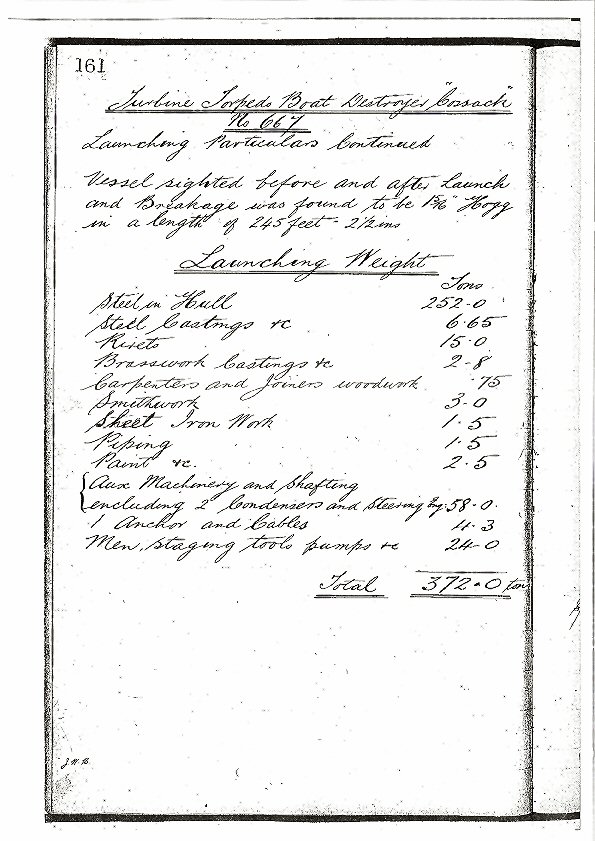 161
Turbine Torpedo Boat Destroyer "Cossack"
No 667
Launching Particulars Continued
Vessel sighted before and after Launch
and Breakage was found to be Hogg
in a length of 245 feet - 2½ins
Launching Weight
Tons
Steel in Hull 252.0
Steel Castings &c 6.65
Rivets 15.0
Brasswork Castings &c 2.8
Carpenters and Joiners woodwork .75
Smithwork 3.0
Sheet Iron Work 1.5
Piping 1.5
Paint &c. 2.5
Aux Machinery and Shafting
excluding 2 Condensers and Steering Eng: 58.0.
1 Anchor and Cables 4.3
Men, staging tools pumps &c 24.0
Total 372.0 tons